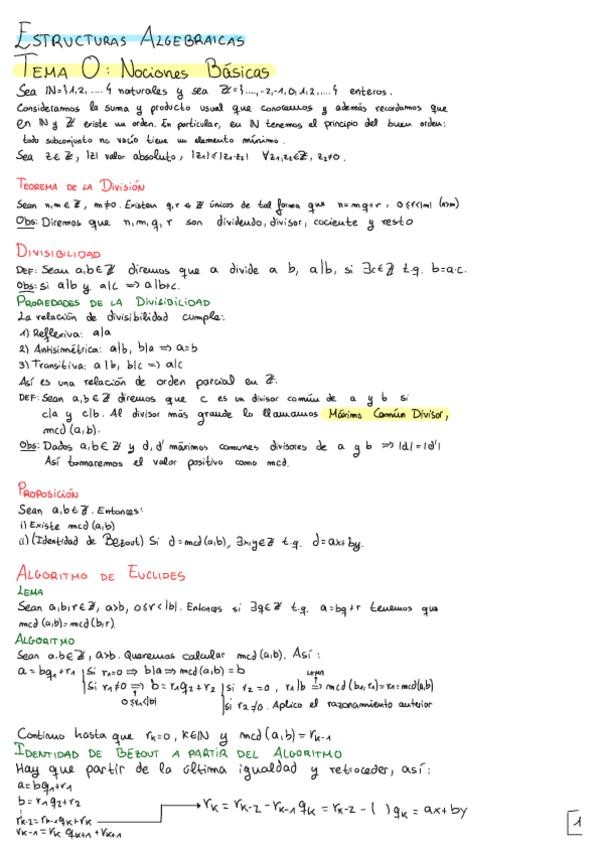 ESTRUCTURAS ALGEBRAICAS
TEMA 0: Nociones Básicas
Sea ℕ={1,2,....} naturales y sea ℤ={....,-2,-1,0,1,2,....} enteros.
Consideramos la suma y producto usual que conocemos y además recordamos que
en ℕ y ℤ existe un orden. En particular, en ℕ tenemos el principio del buen orden:
todo subconjunto no vacío tiene un elemento mínimo.
Sea z∈ℤ, |z| valor absoluto, |z₁|≤|z₁·z₂| ∀z₁,z₂∈ℤ, z₂≠0.
TEOREMA DE LA DIVISIÓN
Sean n,m∈ℤ, m≠0. Existen q,r∈ℤ únicos de tal forma que n=mq+r, 0≤r<|m| (n>m)
Obs: Diremos que n,m,q,r son dividendo, divisor, cociente y resto
DIVISIBILIDAD
DEF: Sean a,b∈ℤ diremos que a divide a b, a|b, si ∃c∈ℤ t.q. b=a·c.
Obs: si a|b y a|c ⇒ a|b+c.
PROPIEDADES DE LA DIVISIBILIDAD
La relación de divisibilidad cumple:
1) Reflexiva: a|a
2) Antisimétrica: a|b, b|a ⇒ a=b
3) Transitiva: a|b, b|c ⇒ a|c
Así es una relación de orden parcial en ℤ.
DEF: Sean a,b∈ℤ diremos que c es un divisor común de a y b si
c|a y c|b. Al divisor más grande lo llamamos Máximo Común Divisor,
mcd(a,b).
Obs: Dados a,b∈ℤ y d,d' máximos comunes divisores de a y b ⇒ |d|=|d'|
Así tomaremos el valor positivo como mcd.
PROPOSICIÓN
Sean a,b∈ℤ. Entonces:
i) Existe mcd(a,b)
ii) (Identidad de Bezout) Si d=mcd(a,b), ∃x,y∈ℤ t.q. d=ax+by.
ALGORITMO DE EUCLIDES
LEMA
Sean a,b,r∈ℤ, a>b, 0≤r<|b|. Entonces si ∃q∈ℤ t.q. a=bq+r tenemos que
mcd(a,b)=mcd(b,r).
ALGORITMO
Sean a,b∈ℤ, a>b. Queremos calcular mcd(a,b). Así:
a=bq₁+r₁ |Si r₁=0 ⇒ b|a ⇒ mcd(a,b)=b
|Si r₁≠0 ⇒ b=r₁q₂+r₂ |si r₂=0, r₁|b ⇒ (LEMA) mcd(b,r₁)=r₁=mcd(a,b)
0≤r₁<|b| |si r₂≠0. Aplico el razonamiento anterior
Continuo hasta que rₖ=0, k∈ℕ y mcd(a,b)=rₖ₋₁
IDENTIDAD DE BÉZOUT A PARTIR DEL ALGORITMO
Hay que partir de la última igualdad y retroceder, así:
a=bq₁+r₁
b=r₁q₂+r₂
⋮
rₖ₋₂=rₖ₋₁qₖ+rₖ → rₖ = rₖ₋₂ - rₖ₋₁qₖ = rₖ₋₂ - ( )qₖ = ax+by
rₖ₋₁=rₖ qₖ₊₁+rₖ₊₁
1